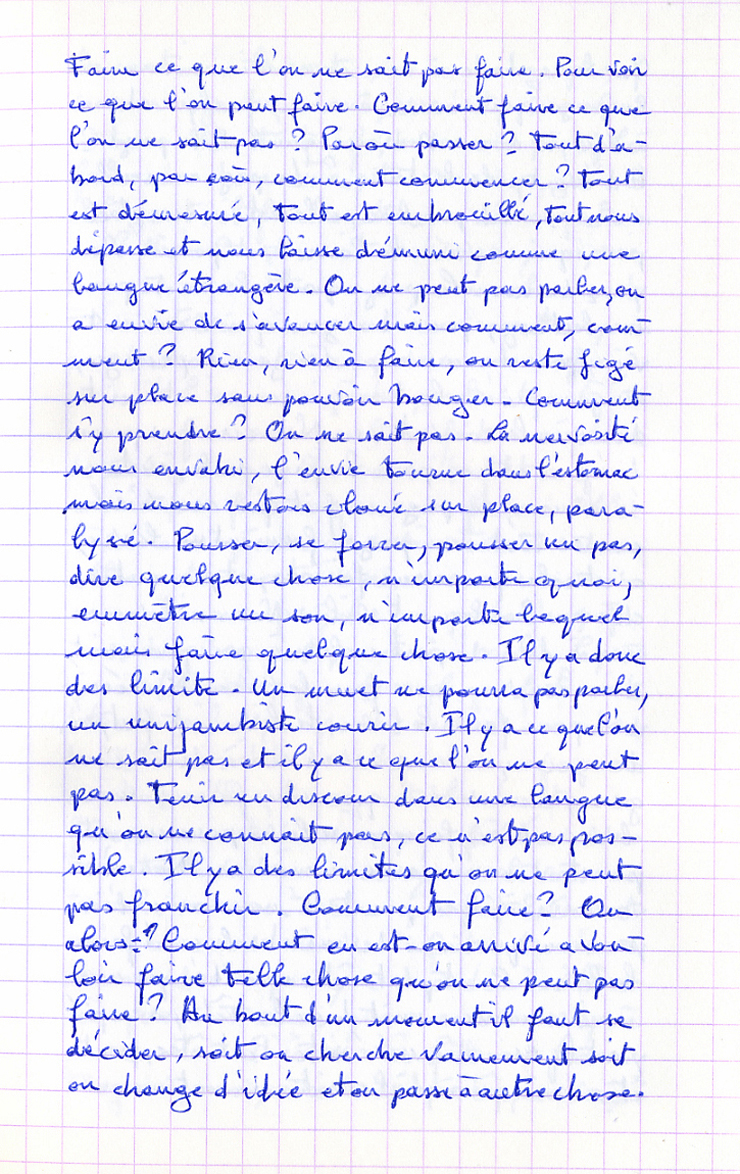 Faire ce que l'on ne sait pas faire. Pour voir
ce que l'on peut faire. Comment faire ce que
l'on ne sait pas ? Par où passer ? Tout d'a-
bord, par où, comment commencer ? Tout
est démesuré, tout est embrouillé, tout nous
dépasse et nous laisse démuni comme une
langue étrangère. On ne peut pas parler, on
a envie de s'avancer mais comment, com-
ment ? Rien, rien à faire, on reste figé
sur place sans pouvoir bouger. Comment
s'y prendre ? On ne sait pas. La nervosité
nous envahi, l'envie tourne dans l'estomac
mais nous restons cloué sur place, para-
lysé. Pousser, se forcer, pousser un pas,
dire quelque chose, n'importe quoi,
emmètre un son, n'importe lequel
mais faire quelque chose. Il y a donc
des limite. Un muet ne pourra pas parler,
un unijambiste courir. Il y a ce que l'on
ne sait pas et il y a ce que l'on ne peut
pas. Tenir un discour dans une langue
qu'on ne connait pas, ce n'est pas pos-
sible. Il y a des limites qu'on ne peut
pas franchir. Comment faire ? Ou
alors : ? Comment en est-on arrivé a vou-
loir faire telle chose qu'on ne peut pas
faire ? Au bout d'un moment il faut se
décider, soit on cherche vainement soit
on change d'idée et on passe à autre chose.